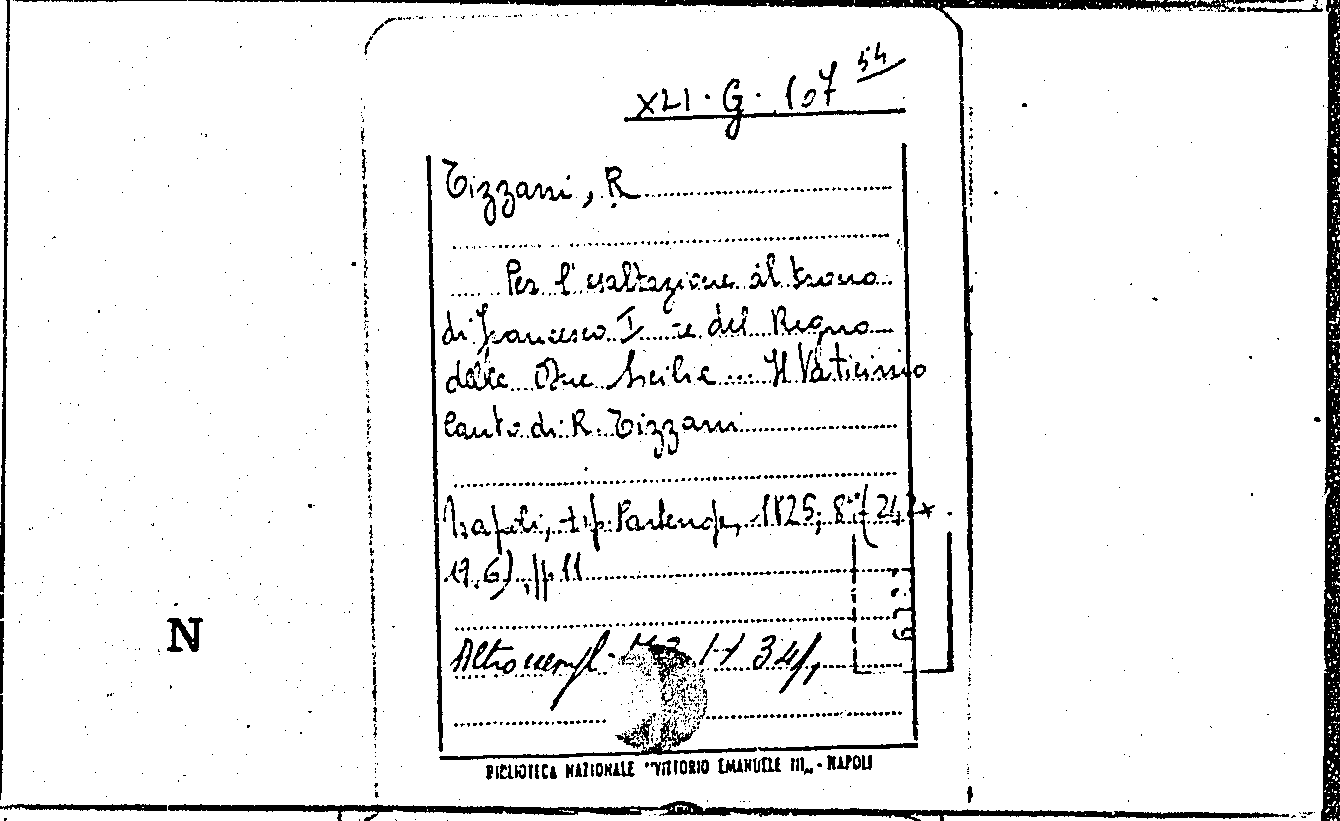 XLI. G. 107 54
Tizzani, R
Per l'esaltazione al trono
di Francesco I re del Regno
delle Due Sicilie ... Il Vaticinio
Canto di R. Tizzani
Napoli, tip. Partenope, 1825, 8° (24,2 x
19.6), pp 11
N
Altro esempl.
BIBLIOTECA NAZIONALE "VITTORIO EMANUELE III" - NAPOLI